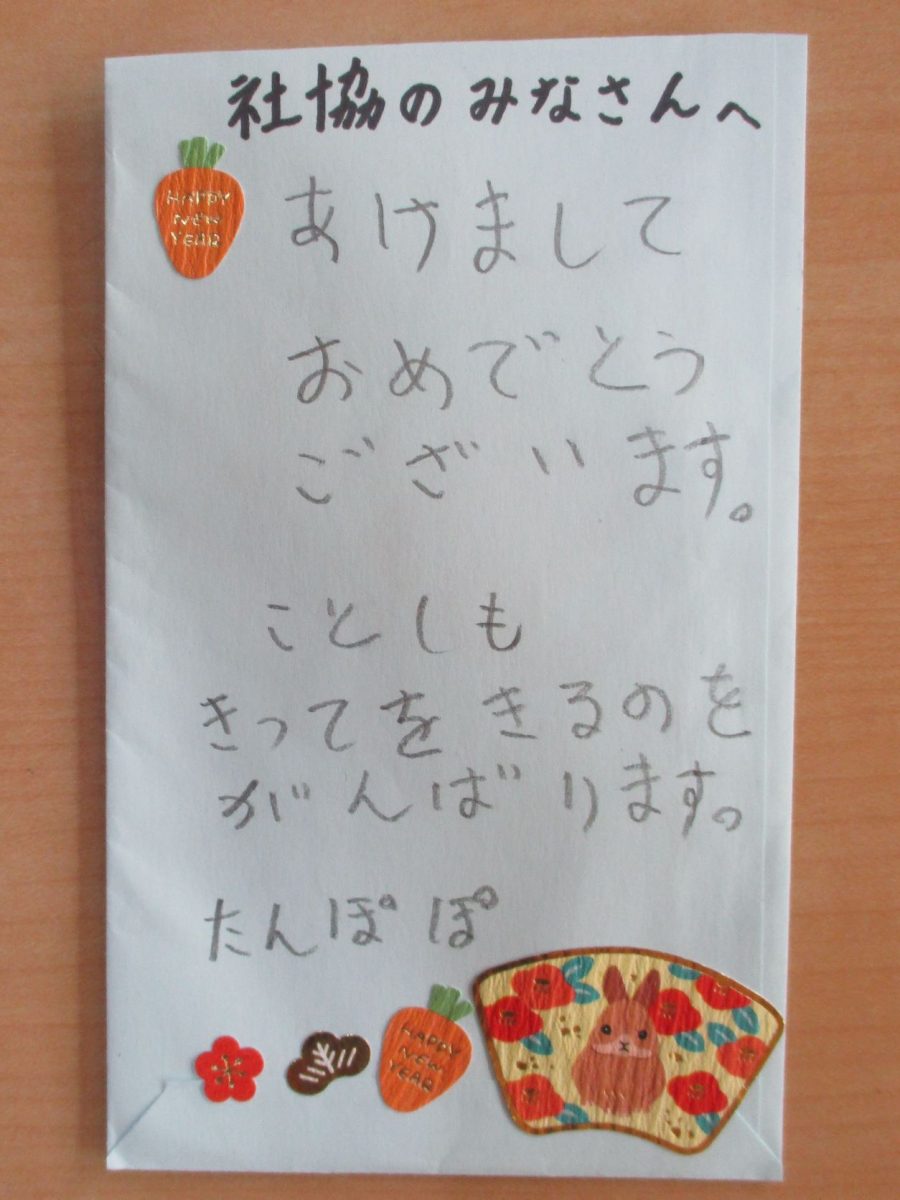 社協のみなさんへ
HAPPY
NEW
YEAR
あけまして
おめでとう
ございます。
ことしも
きってをきるのを
がんばります。
たんぽぽ
HAPPY
NEW
YEAR